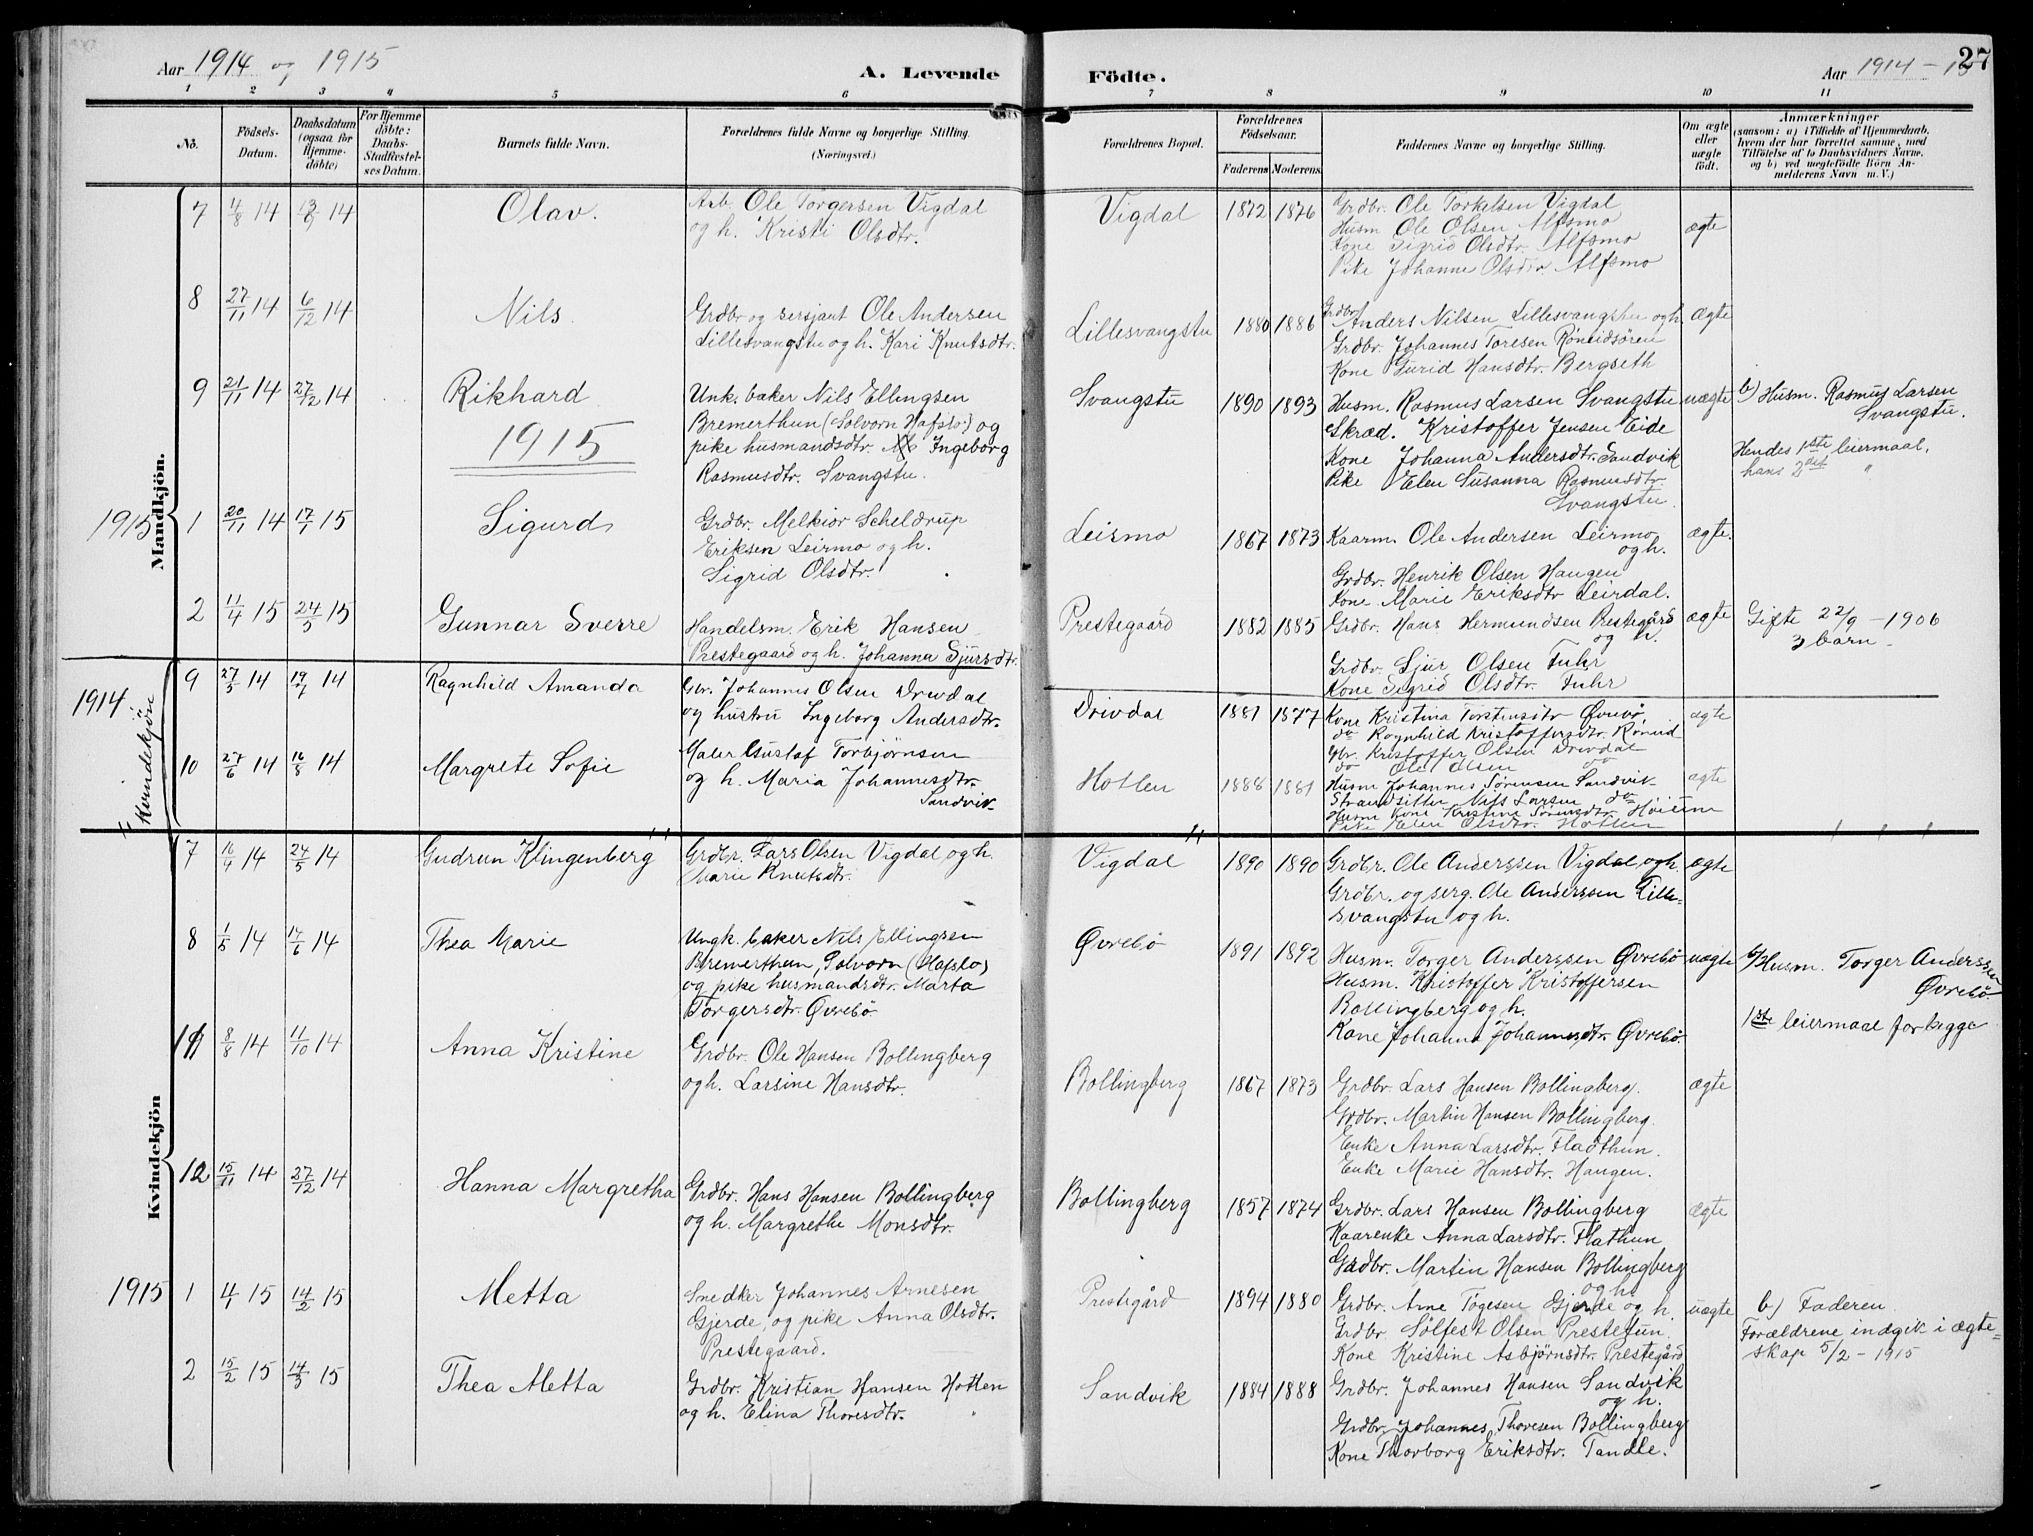 Aar 1914 og 1915
A. Levende Födte.
Aar 1914 - 15
27
1 2 3 4 5 6 7 8 9 10 11
No.
Födsels-Datum.
Daabsdatum (ogsaa for Hjemme-döbte)
For Hjemme döbte: Daabs-Stadfæstel-ses Datum.
Barnets fulde Navn.
Forældrenes fulde Navne og borgerlige Stilling. (Næringsvei.)
Forældrenes Bopæl.
Forældrenes Födselsaar.
Faderens Moderens
Faddernes Navne og borgerlige Stilling.
Om ægte eller uægte födt.
Anmærkninger
(saasom: a) i Tilfælde af Hjemmedaab, hvem der har forrettet samme, med Tilföielse af to Daabsvidners Navne, og b) ved uegtefödte Börn An-melderens Navn m. V.)
Mandkjön.
7 4/8 14 13/9 14 Olav. Arb. Ole Torgersen Vigdal
og h. Kristi Olsdtr.
Vigdal 1872 1876 Grdbr. Ole Torkelsen Vigdal
Husm Ole Olsen Alfsmo
Kone Sigrid Olsdtr. Alfsmo
Pike Johanne Olsdtr Alfsmo
ægte
8 27/11 14 6/12 14 Nils. Grdbr og sersjant Ole Andersen
Lillesvangstu og h. Kari Knutsdtr.
Lillesvangstu 1880 1886 Grdbr Anders Nilsen Lillesvangstu og h.
Grdbr. Johannes Toresen Röneidsören
Kone Gurid Hansdtr. Bergseth
ægte
9 21/11 14 27/12 14 Rikhard Unk. baker Nils Ellingsen
Bremerthun (Solvorn Hafslo) og
pike husmandsdtr. Ingeborg
Rasmusdtr. Svangstu.
Svangstu 1890 1893 Husm. Rasmus Larsen Svangstu
Skræd. Kristoffer Jensen Eide
Kone Johanna Andersdtr. Sandvik
Pike Elen Susanna Rasmusdtr.
Svangstu.
uægte
b) Husm. Rasmus Larsen
Svangstu.
Hendes 1ste leiermaal,
hans 2det "
1915
1915
1 20/11 14 17/1 15 Sigurd Grdbr. Melkior Scheldrup
Eriksen Leirmo og h.
Sigrid Olsdtr.
Leirmo 1867 1873 Kaarm. Ole Andersen Leirmo
og h.
Grdbr. Henrik Olsen Haugen
Kone Marie Eriksdtr Leirdal.
ægte.
2 11/4 15 24/5 15 Gunnar Sverre Handelsm. Erik Hansen
Prestegaard og h. Johanna Sjursdtr.
Prestegaard 1882 1885 Grdbr. Hans Hermundsen Prestegård
og h.
Grdbr. Sjur Olsen Fuhr
Kone Sigrid Olsdtr. Fuhr
ægte
Gifte 22/9 - 1906
3 barn -
1914
Kvindekjön
9 27/5 14 19/7 14 Ragnhild Amanda Gbr. Johannes Olsen Drivdal
og hustru Ingeborg Andersdtr.
Drivdal 1881 1877 Kone Kristina Torstensdtr Øvrebø
do Ragnhild Kristoffersdtr. Röneid
Gbr. Kristoffer Olsen Drivdal
do Ole Olsen do
ægte
10 27/6 14 16/8 14 Margrete Sofie Maler Gustaf Torbjørnsen
og h. Maria Johannesdtr.
Sandvik
Hotlen 1888 1881 Husm Johannes Sørensen Sandvik
Strandsitter Nils Larsen do
Husm kone Kristine Sørensdtr. Høium
Pike Elen Olsdtr. Hotlen
ægte
Kvindekjön
7 16/4 14 24/5 14 Gudrun Klingenberg Grdbr. Lars Olsen Vigdal og h.
Marie Knutsdtr.
Vigdal 1890 1890 Grdbr. Ole Anderssen Vigdal og h.
Grdbr. og serg. Ole Anderssen Lille-
svangstu og h.
ægte
8 1/5 14 14/6 14 Thea Marie Ungk. baker Nils Ellingsen
Bremerthun, Solvorn (Hafslo)
og pike husmandsdtr. Marta
Torgersdtr. Øvrebø
Øvrebö 1891 1892 Husm. Torger Anderssen Øvrebø
Husm. Kristoffer Kristoffersen
Bollingberg og h.
Kone Johanna Johannesdtr. Øvrebø
uægte
b/ Husm. Torger Anderssen
Øvrebø
1ste leiermaal for begge
11 8/8 14 11/10 14 Anna Kristine Grdbr. Ole Hansen Bollingberg
og h. Larsine Hansdtr.
Bollingberg 1867 1873 Grdbr. Lars Hansen Bollingberg.
Grdbr. Martin Hansen Bollingberg.
Enke Anna Larsdtr. Fladthun.
Enke Marie Hansdtr. Haugen.
ægte
12 15/11 14 27/12 14 Hanna Margretha Grdbr. Hans Hansen Bollingberg
og h. Margrethe Monsdtr.
Bollingberg 1857 1874 Grdbr. Lars Hansen Bollingberg
Kaarenke Anna Larsdtr. Flathun
Grdbr. Martin Hansen Bollingberg
og h.
ægte
1915
1 4/1 15 14/2 15 Metta Snedker Johannes Arnesen
Gjerde, og pike Anna Olsdtr.
Prestegaard.
Prestegård 1894 1880 Grdbr. Arne Tøgesen Gjerde og h.
Grdbr Sølfest Olsen Prestetun.
Kone Kristine Asbjørnsdtr. Prestegård
uægte
b) Faderen.
Forældrene indgik i ægte=
skap 5/2 - 1915
2 15/2 15 14/3 15 Thea Metta Grdbr. Kristian Hansen Hotten
og h. Elina Thoresdtr.
Sandvik 1884 1888 Grdbr. Johannes Hansen Sandvik
og h.
Grdbr. Johannes Thoresen Bollingberg
Kone Thorborg Eriksdtr. Tandle.